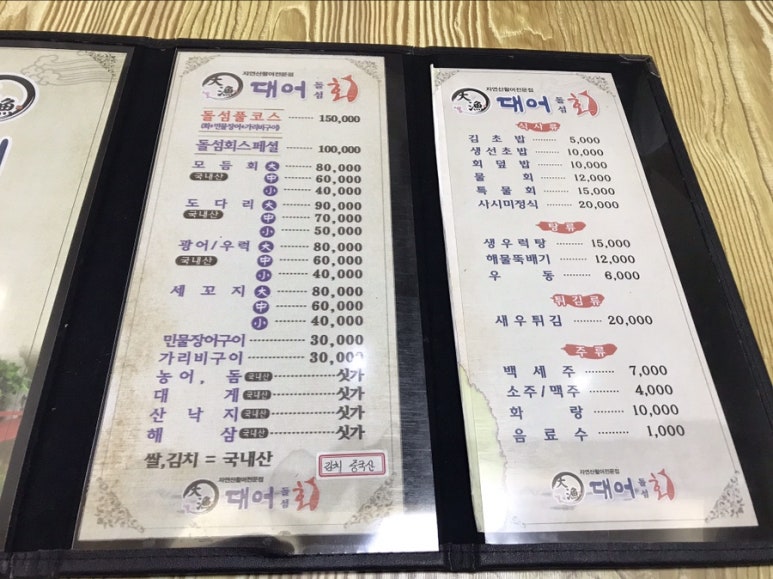 漁
자연산활어전문점
大漁 대어 돌섬 회
돌섬풀코스 150,000
(회+민물장어+가리비구이)
돌섬회스페셜 100,000
모듬회 大 80,000
국내산 中 60,000
小 40,000
도다리 大 90,000
국내산 中 70,000
小 50,000
광어/우럭 大 80,000
국내산 中 60,000
小 40,000
세꼬지 大 80,000
中 60,000
小 40,000
민물장어구이 30,000
가리비구이 30,000
농어, 돔 국내산 싯가
대게 국내산 싯가
산낙지 국내산 싯가
해삼 국내산 싯가
쌀,김치 = 국내산
김치 중국산
자연산활어전문점
大漁 대어 돌섬 회
자연산활어전문점
大漁 대어 돌섬 회
식사류
김초밥 5,000
생선초밥 10,000
회덮밥 10,000
물회 12,000
특물회 15,000
사시미정식 20,000
탕류
생우럭탕 15,000
해물뚝배기 12,000
우동 6,000
튀김류
새우튀김 20,000
주류
백세주 7,000
소주/맥주 4,000
화랑 10,000
음료수 1,000
자연산활어전문점
大漁 대어 돌섬 회